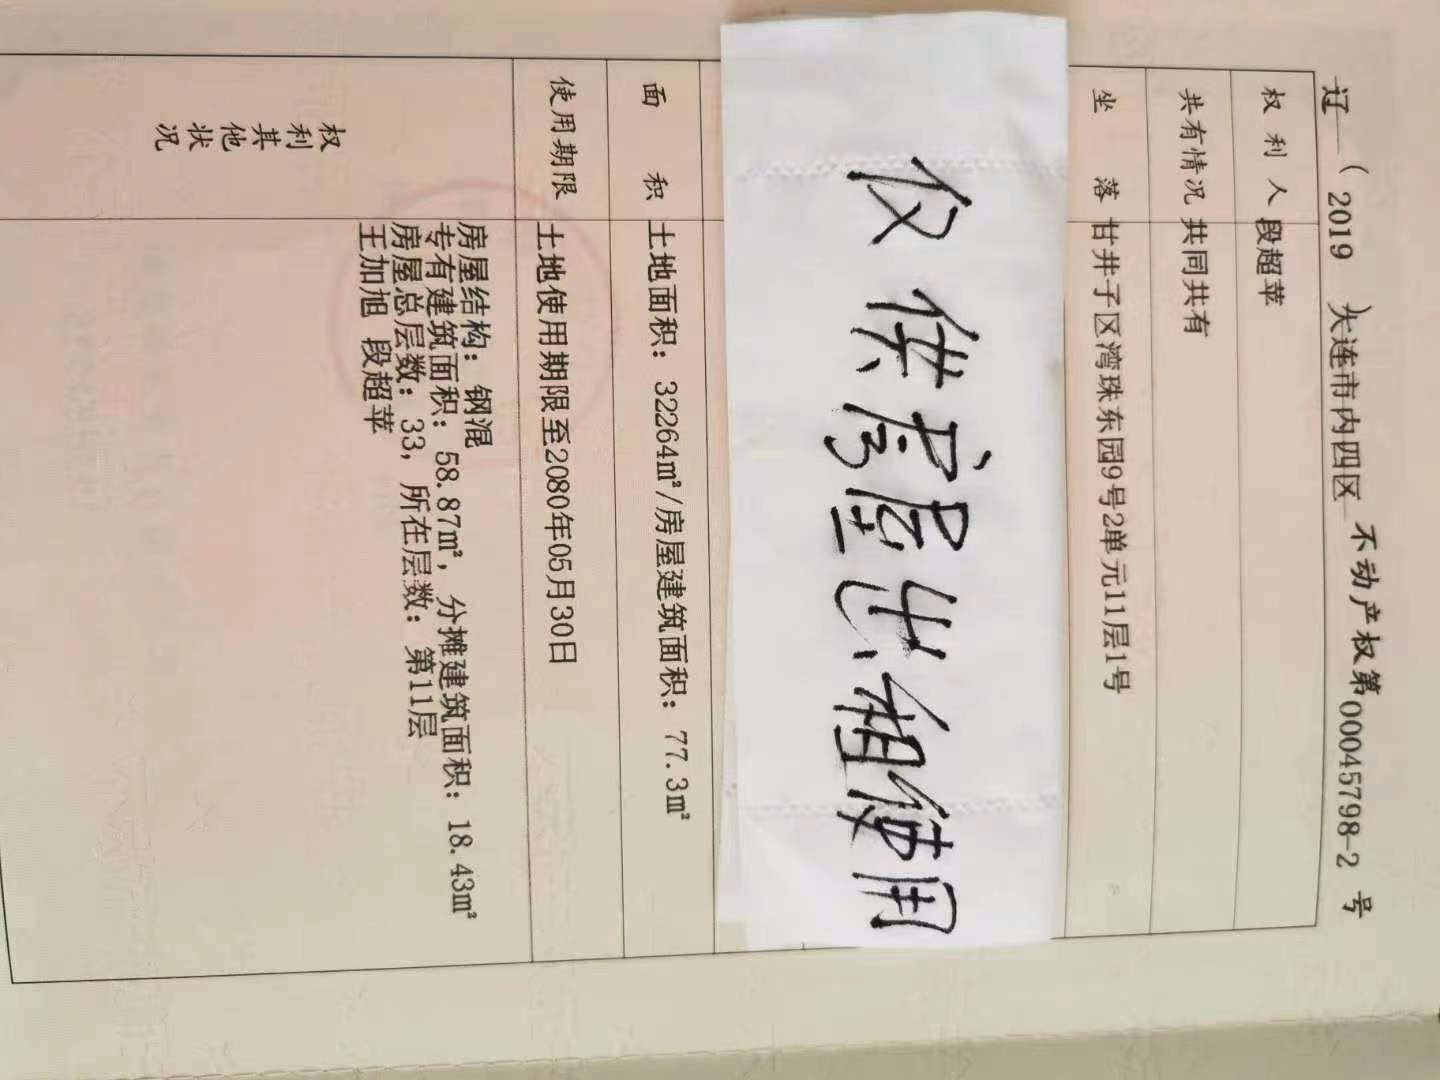 辽(2019)大连市内四区不动产权第00045798-2号
权利人 段超苹
共有情况 共同共有
坐落 甘井子区湾珠东园9号2单元11层1号
仅供房屋出租使用
面积 土地面积：32264m²/房屋建筑面积：77.3m²
使用期限 土地使用期限至2080年05月30日
权利其他状况
房屋结构：钢混
专有建筑面积：58.87m²，分摊建筑面积：18.43m²
房屋总层数：33，所在层数：第11层
王加旭 段超苹